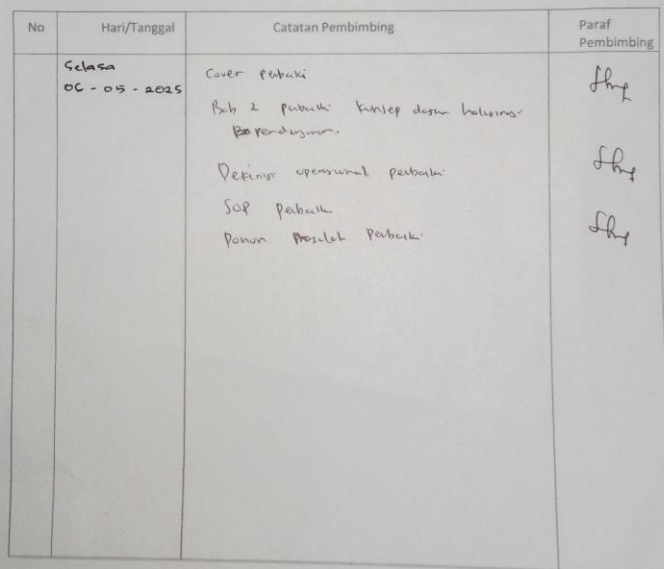 No Hari/Tanggal Catatan Pembimbing Paraf Pembimbing
Selasa
06 - 05 - 2025
Cover perbaiki
Bab 2 perbaiki konsep dasar halusinasi
pendengaran.
Definisi operasional perbaiki
SOP perbaiki
Pohon Masalah Perbaiki